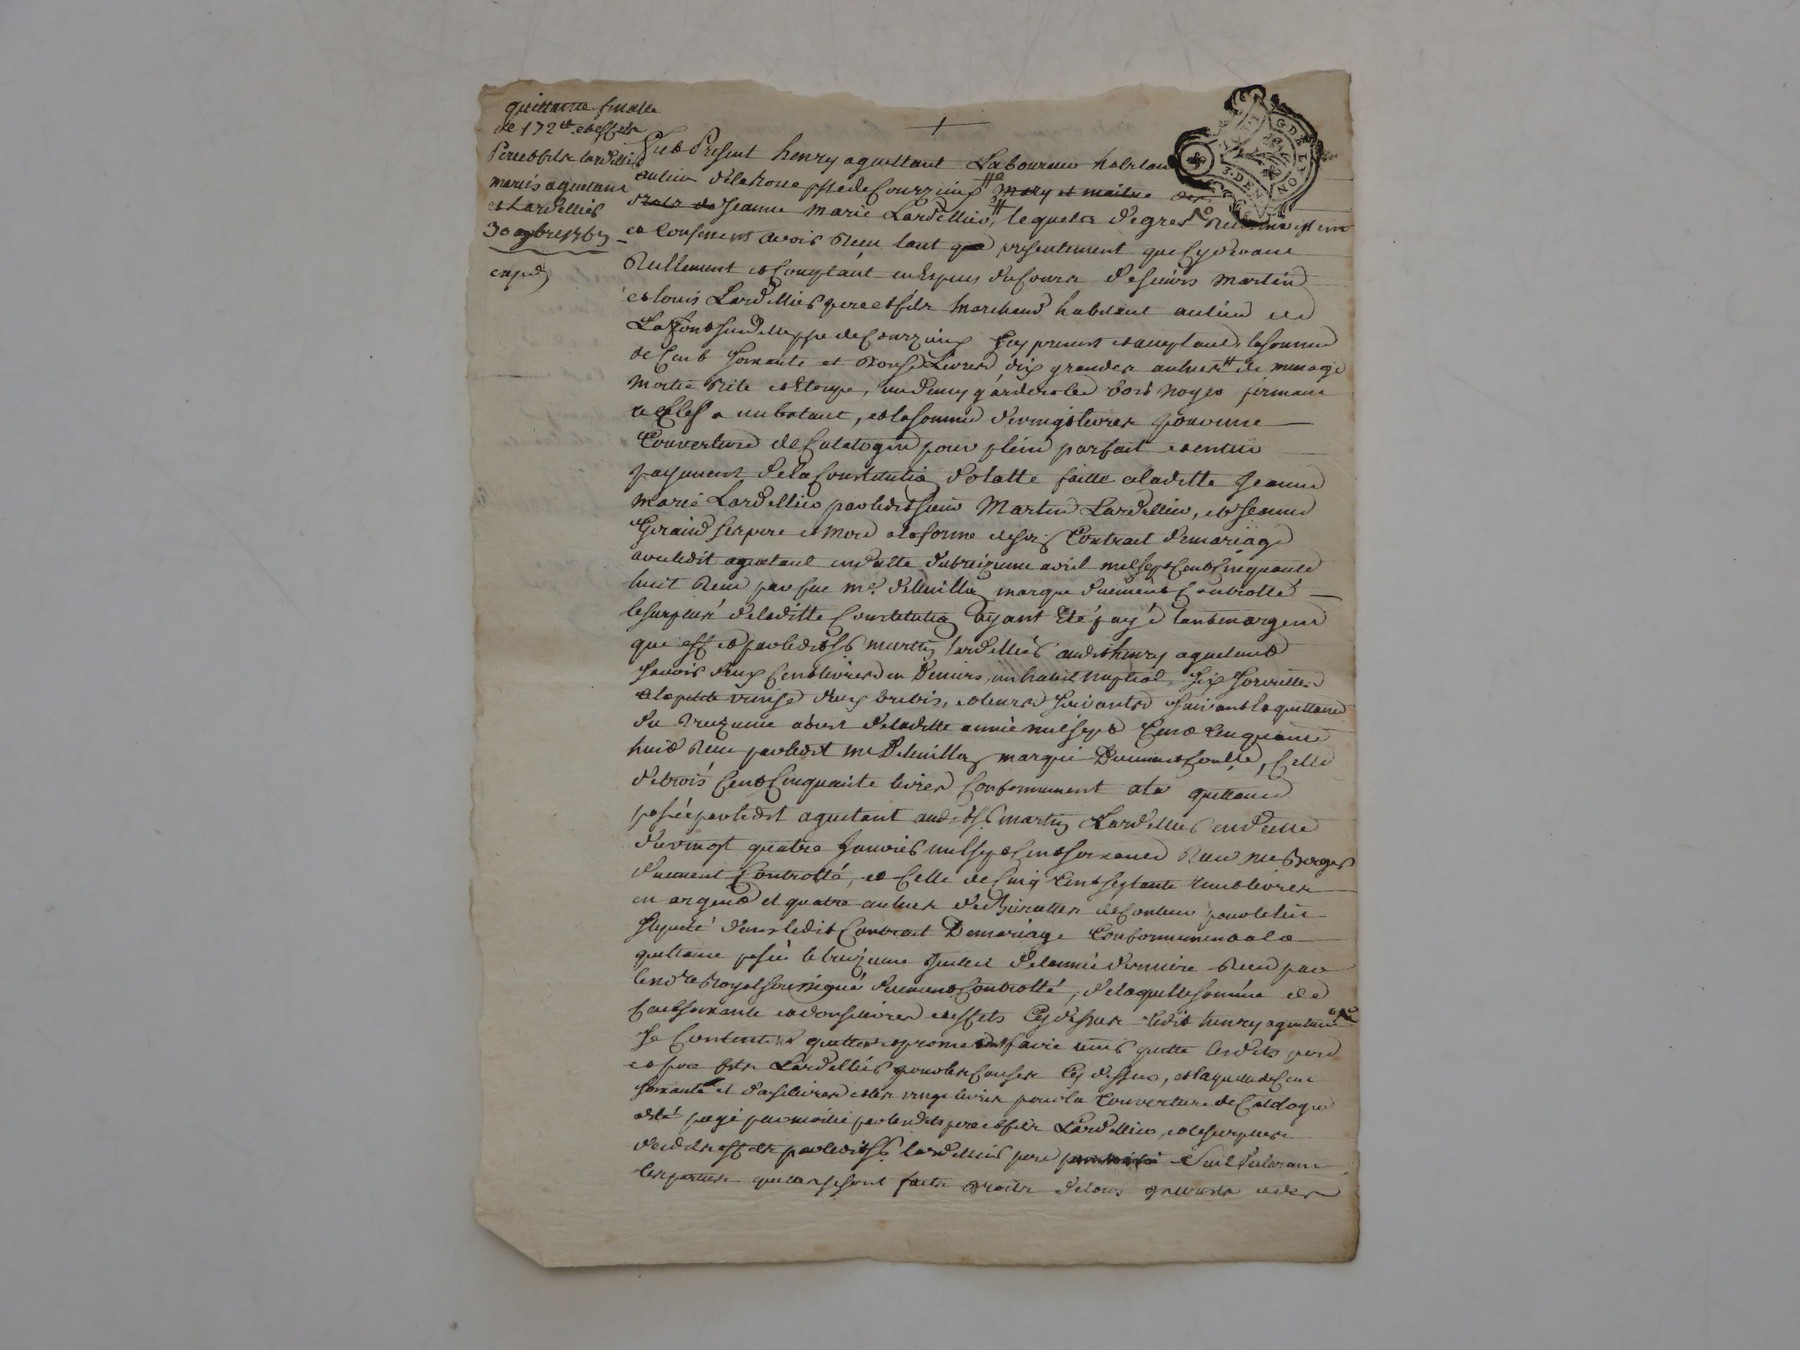 quittance finalle
de 172 ₶ et effets
Pere et fils Lardellier
mariés aguetant
et Lardellier
30 9bre 1763
exped
G DE LYON
3. DEN
Fut Present henry aguettant Laboureur habitant
au lieu de psse de Courzieu mary et maitre des
droits de Jeanne Marie Lardellier, lequel de gré
et Consent avoir Reçu tant que presentement que Cy devant
Réellement et Comptant en Espèces de Cours de sieurs Martin
et Louis Lardellier pere et fils marchand habitant au lieu de
psse de Courzieu Icy present et acceptant, la somme
de Cent soixante et douse Livres dix grandes aulnes de menage
moitié Rite et Etoupe, un demy garderobe bois noyer fermant
a Clef a un batant, et la somme de vingt livres pour une
Couverture de Catalogne pour plein parfait et entier
payement de la Constitution dotalle faitte a laditte Jeanne
Marie Lardellier par ledit sieur Martin Lardellier, et Jeanne
Giraud ses pere et mere a la forme de son Contrat de mariage
avec ledit aguetant en datte du treizieme avril mil sept Cent Cinquante
huit Reçu par feu me. Deluilles marque duement Controllé
le surplus de laditte Constitution ayant Eté payé tant en argent
que effets par ledit Sr Martin Lardellier audit henry aguetant
savoir deux Cent livres en deniers, un habit nuptial, six serviettes
a la petite venise deux brebis, et leurs suivantes suivant la quittance
du treizieme avril de laditte année mil sept Cent Cinquante
huit Reçue par ledit me Deluilles marqué Duement Conllé, Celle
de trois Cent Cinquante livres Conformement a la quittance
passée par ledit aguetant audit Sr martin Lardellier en datte
du vingt quatre Janvier mil sept Cent soixante Reçu me
duement Controllé, et Celle de Cinq Cent septante livres
en argent et quatre aulnes de de Couleur pour le lit
stipulé dans ledit Contrat De mariage Conformement a la
quittance passée le treizieme Juillet de l'année derniere Reçu par
le nore Royal soussigné duement Controllé, de laquelle somme de
Cent soixante et douse livres et effets Cy dessus ledit henry aguetant
se Contente quitte et promet faire tenir quitte lesdits pere
et fils Lardellier pour les Causes Cy dessus, et laquelle de Cent
soixante et douse livres et les vingt livres pour la Couverture de Catalogne
a eté payé par moitié par lesdits pere et fils Lardellier, et le surplus
desdits effets par ledit Sr. Lardellier pere seul
les parties